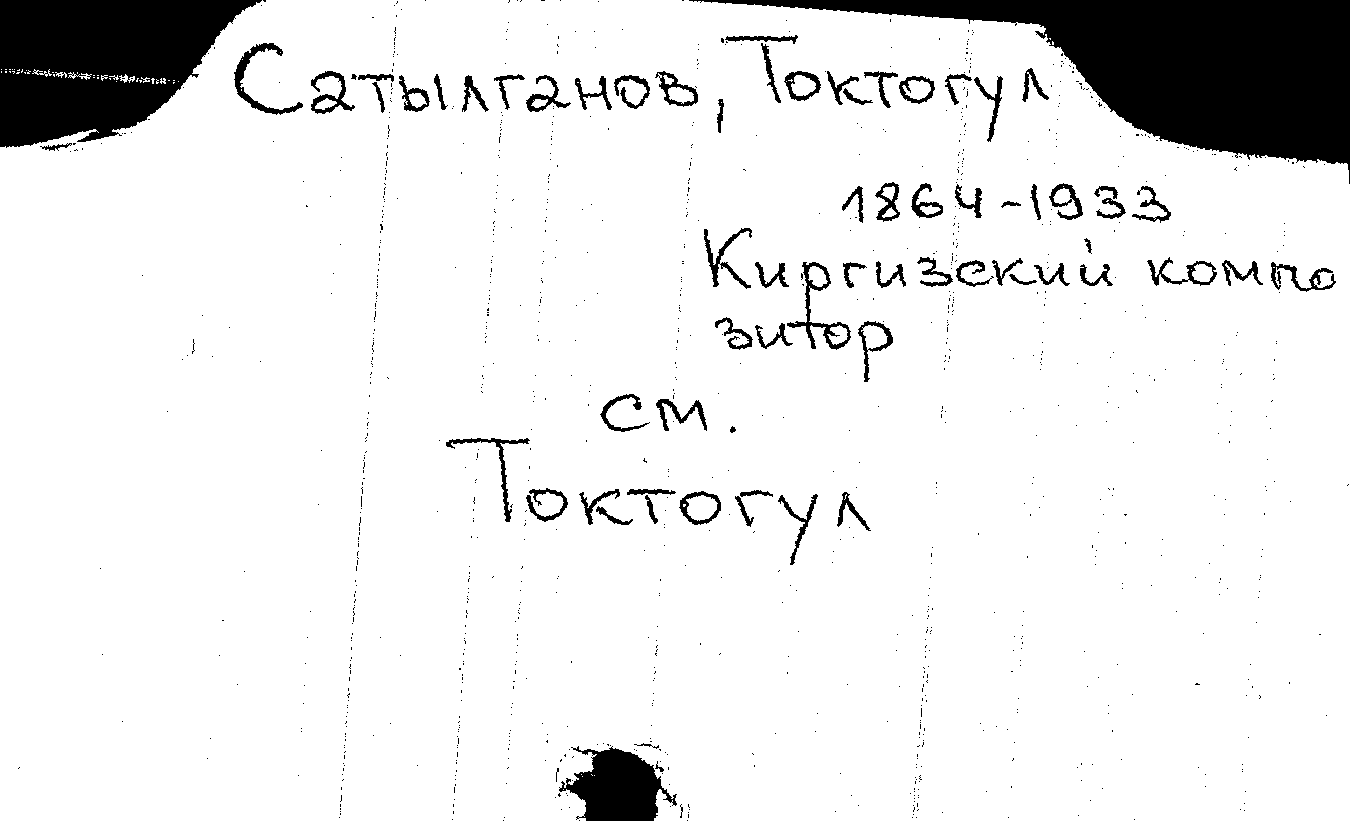 Сатылганов, Токтогул
1864-1933
Киргизский компо
зитор
см.
Токтогул